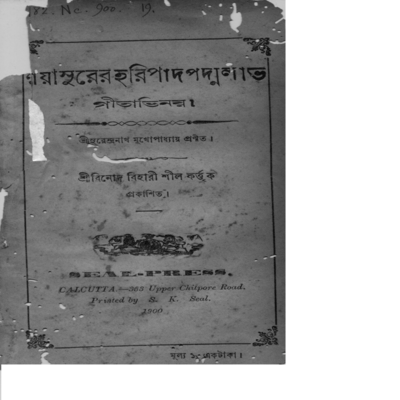 182. No. 900. 19.
গয়াসুরের হরিপাদপদ্মলাভ
গীতাভিনয়।
শ্রীসুরেন্দ্রনাথ মুখোপাধ্যায় প্রণীত।
শ্রীবিনোদ বিহারী শীল কর্ত্তৃক
প্রকাশিত।
SEAL-PRESS.
CALCUTTA—333 Upper Chitpore Road.
Printed by S. K. Seal.
1900.
মূল্য ১৲ একটাকা।